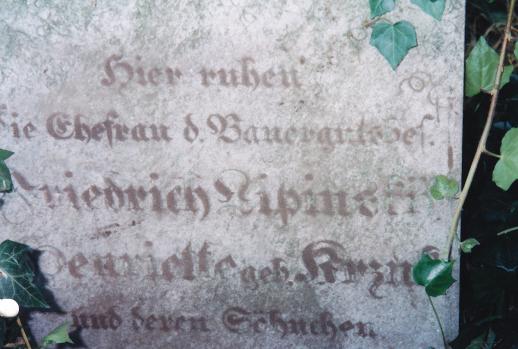 Hier ruhen
die Ehefrau d. Bauergutsbes.
Friedrich Lipinski
Henriette geb.
und deren Söhnchen